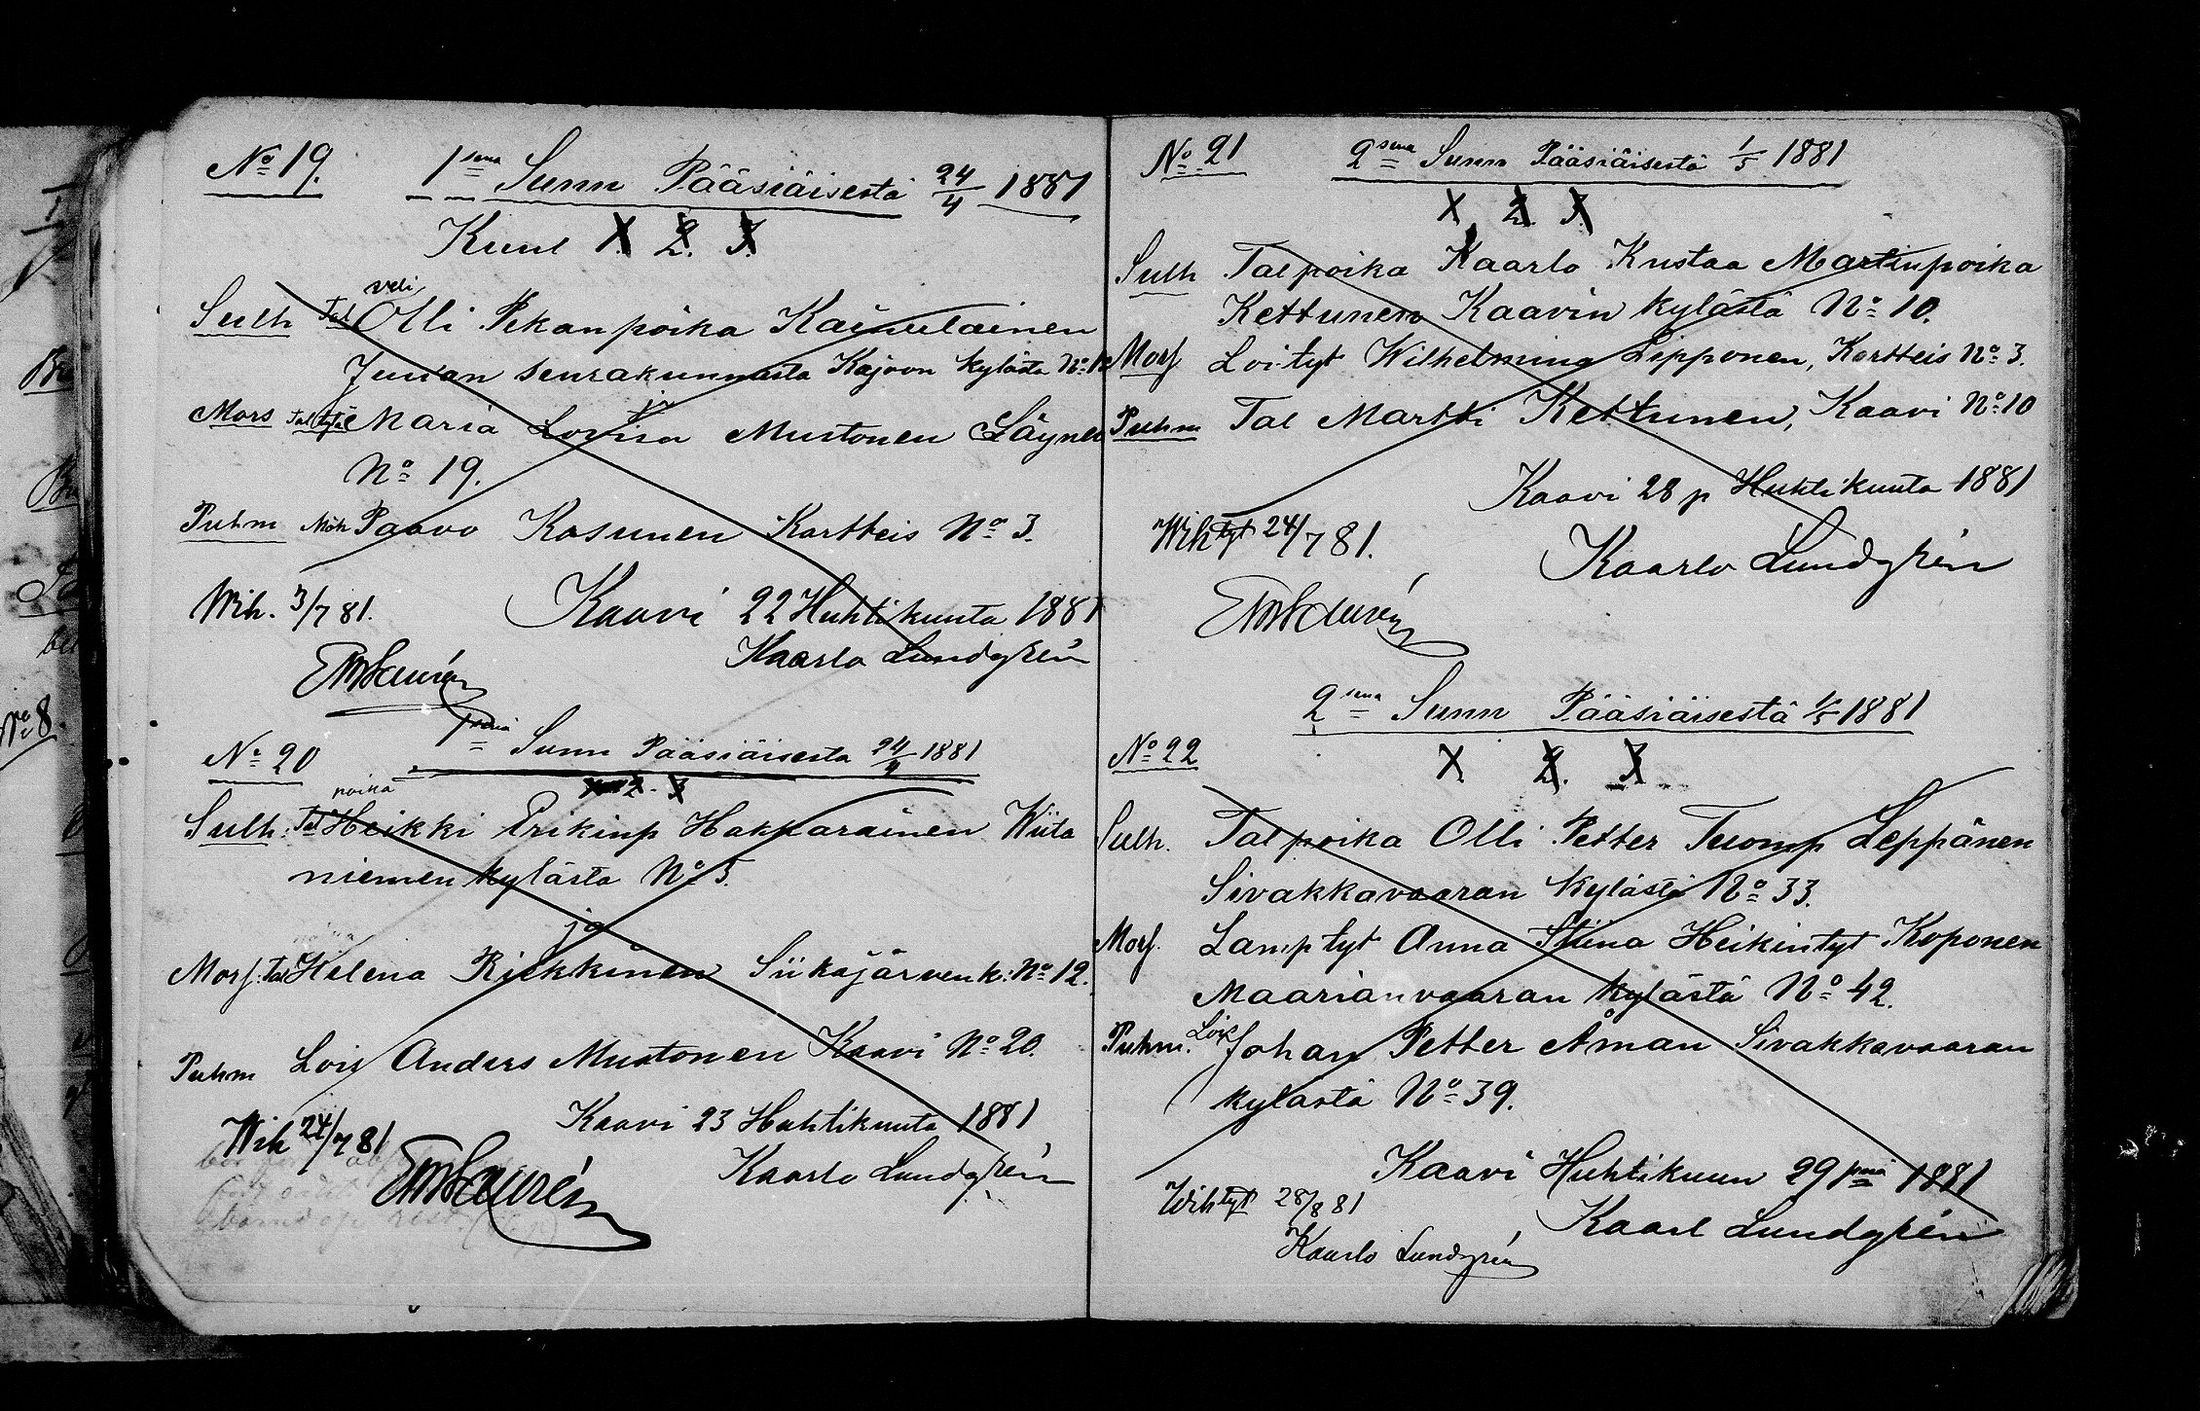 No 19. 1sena Sunn Pääsiäisestä 24/4 1881
Kuul 1. 2. 3.
veli
Sulh Tal Olli Pekanpoika Kainulainen
Juuan seurakunnasta Kajoon kylästä No
ja
Mors Tal tytä Maria Lovisa Mustonen
No 19.
Puhm Möh Paavo Kosunen Kortteis No 3.
Wih. 3/7 81. Kaavi 22 Huhtikuuta 1881
Kaarlo Lundgrén
No 20 1senä Sunn Pääsiäisestä 24/4 1881
1. 2. 3
poika
Sulh: Tal Heikki Erikinp Hakkarainen Wiita
niemen kylästä No 5.
ja
Morf: Tal Helena Riekkinen Siikajärven k: No 12.
Puhm Lois Anders Mustonen Kaavi No 20.
Kaavi 23 Huhtikuuta 1881
Wih 24/7 81
Kaarlo Lundgrén
No 21 2sena Sunn Pääsiäisestä 1/5 1881
X 2. 3.
Sulh Talpoika Kaarlo Kustaa Martinpoika
Kettunen Kaavin kylästä No 10.
Morf Loi tyt Wilhelmina Lipponen, Kortteis No 3.
Puhm Tal Martti Kettunen, Kaavi No 10
Kaavi 28 p Huhtikuuta 1881
Wihtyt 24/7 81.
Kaarlo Lundgrén
2sena Sunn Pääsiäisestä 1/5 1881
No 22
X 2. 3.
Sulh. Talpoika Olli Petter Tuomp Leppänen
Sivakkavaaran kylästä No 33.
Morf. Lamp tyt Anna Stiina Heikintyt Koponen
Maarianvaaran kylästä No 42.
Puhm. Lois Johan Petter Åman Sivakkavaaran
kylästä No 39.
Kaavi Huhtikuun 29 pnä 1881
Wihtyt 28/8 81
Kaarl Lundgrén
Kaarlo Lundgrén